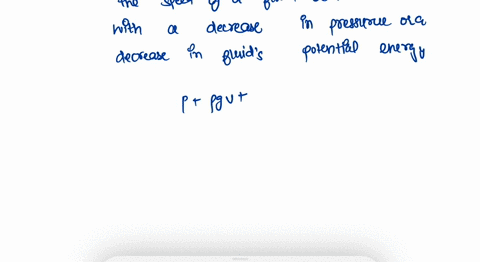 the speed of a
with a decrease in pressure or a
decrease in fluid's potential energy
P + ρgv +